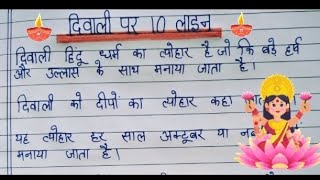 दिवाली पर 10 लाइन
दिवाली हिंदू धर्म का त्योहार है जो कि बड़े हर्ष
और उल्लास के साथ मनाया जाता है।
दिवाली को दीपों का त्योहार कहा
यह त्योहार हर साल अक्टूबर या
मनाया जाता है।